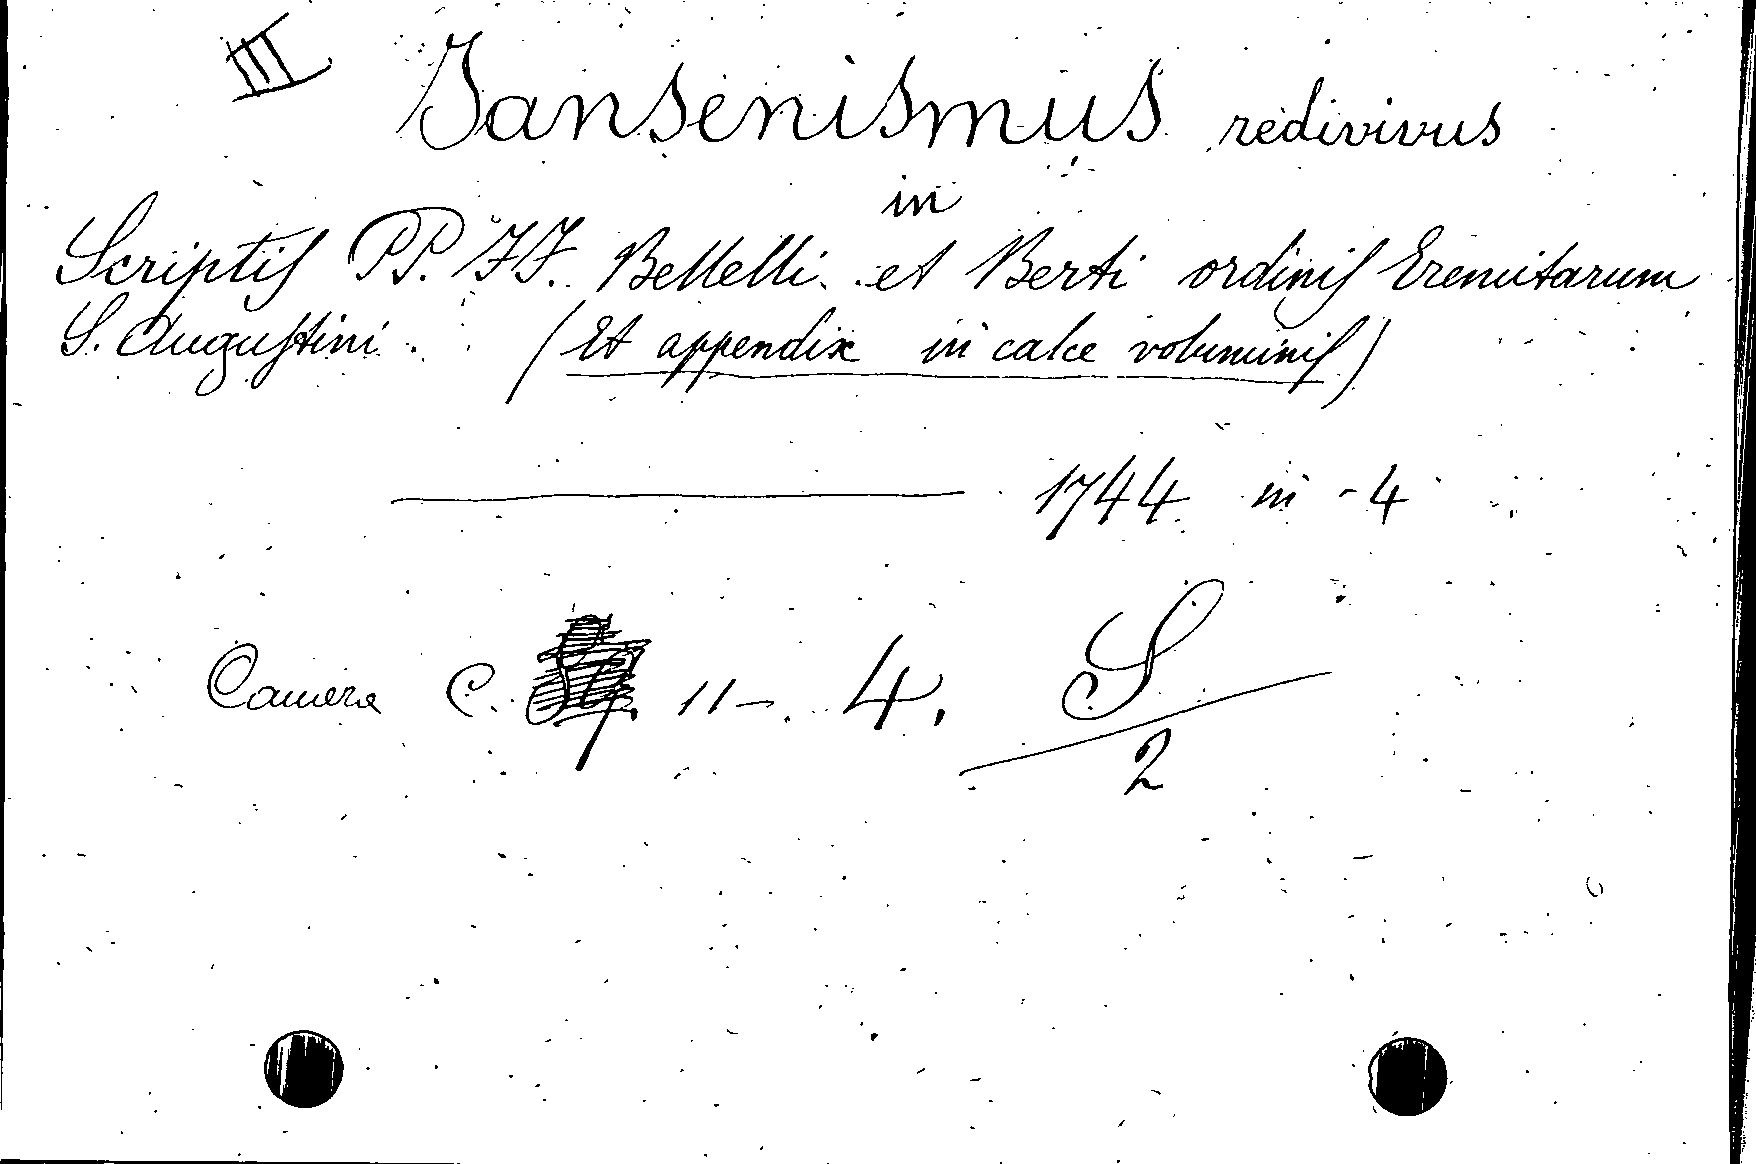 III
Jansenismus redivivus
in
Scriptis PP. FF. Bellelli et Berti ordinis Eremitarum
S. Augustini. (Et appendix in calce voluminis)
1744 in-4
Camera C. 11-. 4. S/2